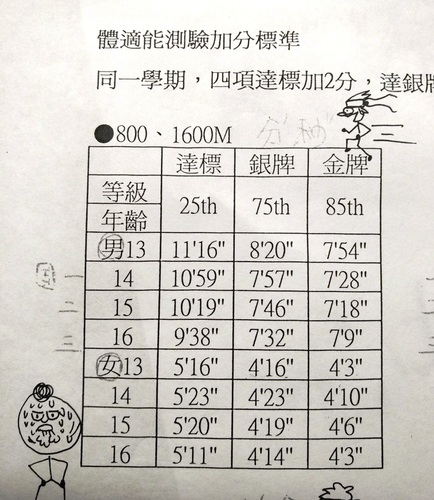 體適能測驗加分標準
同一學期，四項達標加2分，達銀牌
●800、1600M 分 秒
達標 銀牌 金牌
等級
年齡 25th 75th 85th
男13 11'16" 8'20" 7'54"
一 14 10'59" 7'57" 7'28"
二 15 10'19" 7'46" 7'18"
三 16 9'38" 7'32" 7'9"
女13 5'16" 4'16" 4'3"
14 5'23" 4'23" 4'10"
15 5'20" 4'19" 4'6"
16 5'11" 4'14" 4'3"